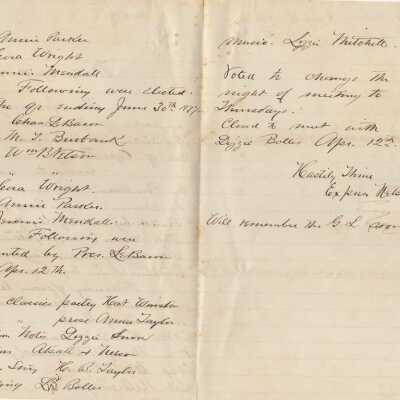 Annie Parker
Cora Wright
Jennie Mendall
Following were elected
the qr ending June 30th 187
Chas LeBaron
M. T. Burbank
Wm B Nelson
" "
Cora Wright
Annie Parker
Jennie Mendall
Following were
by Pres. LeBaron
Apr. 12th.
classics poetry Hat
" prose Annie Taylor
Notes Lizzie Snow
& Nelson
Song H. B. Taylor
Bolles
music. Lizzie Mitchell.
Voted to change the
night of meeting to
Thursdays.
Closed to meet with
Lizzie Bolles Apr. 12th.
Hastily Thine
Will remember the G L